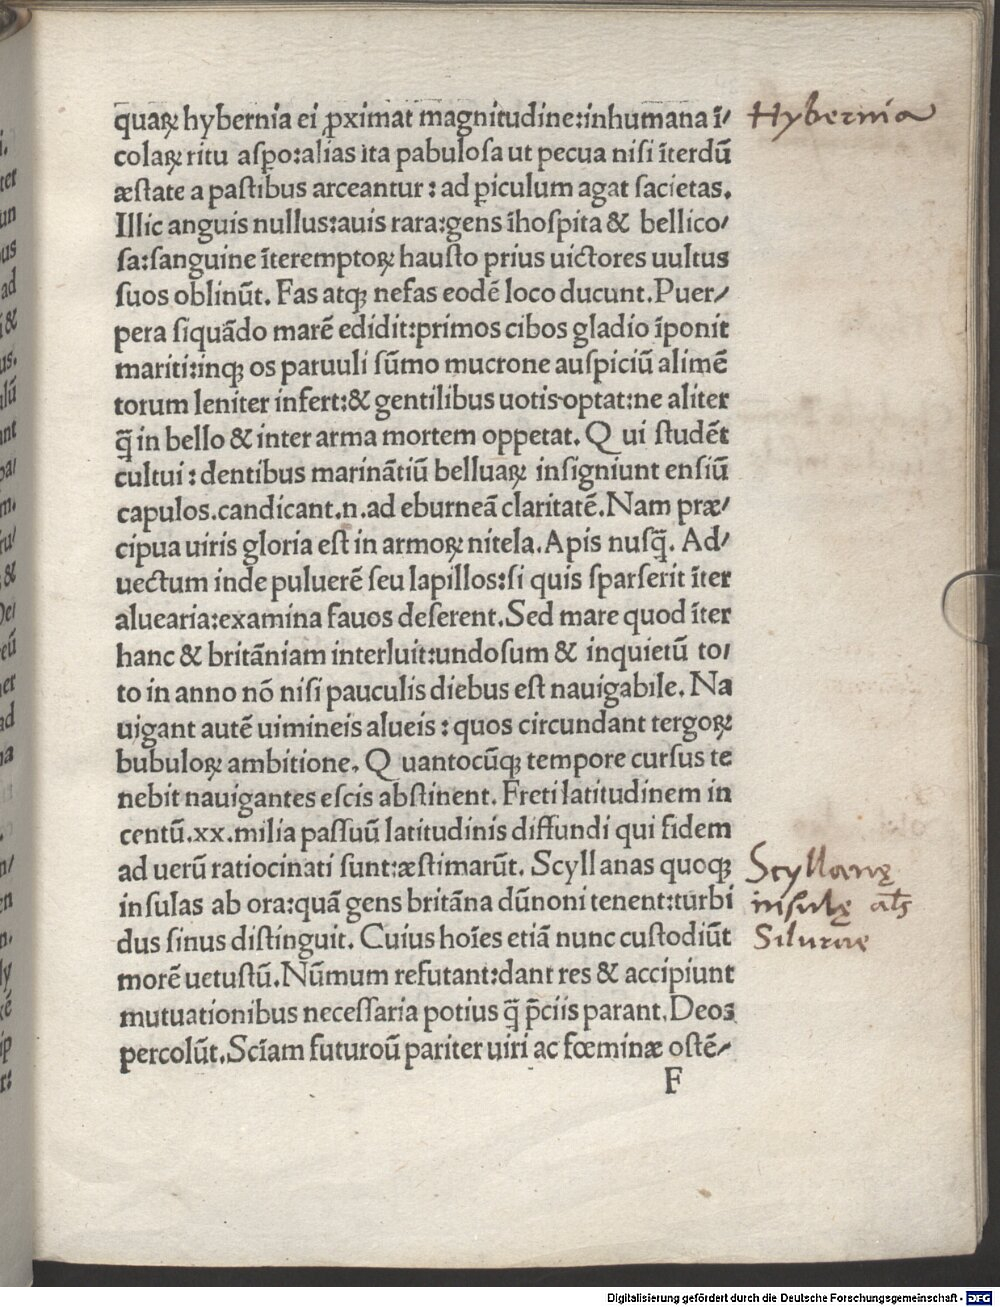 quaꝝ hybernia ei ꝓximat magnitudine:inhumana ī/
colaꝝ ritu aspo:alias ita pabulosa ut pecua nisi īterdū
æstate a pastibus arceantur : ad ꝑiculum agat sacietas.
Illic anguis nullus:auis rara:gens īhospita & bellico/
sa:sanguine īteremptoꝝ hausto prius uictores uultus
suos oblinūt. Fas atqꝫ nefas eodē loco ducunt.Puer/
pera siquādo marē edidit:primos cibos gladio īponit
mariti:inqꝫ os paruuli sūmo mucrone auspiciū alimē
torum leniter infert:& gentilibus uotis optat:ne aliter
q̄ in bello & inter arma mortem oppetat. Q ui studēt
cultui : dentibus marinātiū belluaꝝ insigniunt ensiū
capulos.candicant.n.ad eburneā claritatē.Nam præ/
cipua uiris gloria est in armoꝝ nitela.Apis nusq̄. Ad/
uectum inde puluerē seu lapillos:si quis sparserit īter
aluearia:examina fauos deserent.Sed mare quod īter
hanc & britāniam interluit:undosum & inquietū to/
to in anno nō nisi pauculis diebus est nauigabile. Na
uigant autē uimineis alueis : quos circundant tergoꝝ
bubuloꝝ ambitione. Q uantocūqꝫ tempore cursus te
nebit nauigantes escis abstinent. Freti latitudinem in
centū.xx.milia passuū latitudinis diffundi qui fidem
ad uerū ratiocinati sunt:æstimarūt. Scyll anas quoqꝫ
insulas ab ora:quā gens britāna dūnoni tenent:turbi
dus sinus distinguit. Cuius hoīes etiā nunc custodiūt
morē uetustū.Nūmum refutant:dant res & accipiunt
mutuationibus necessaria potius q̄ p̄ciis parant.Deos
percolūt.Scīam futuroū pariter uiri ac fœminæ ostē/
F
Hybernia
Scyllanę
insulę
Silurae
Digitalisierung gefördert durch die Deutsche Forschungsgemeinschaft - DFG